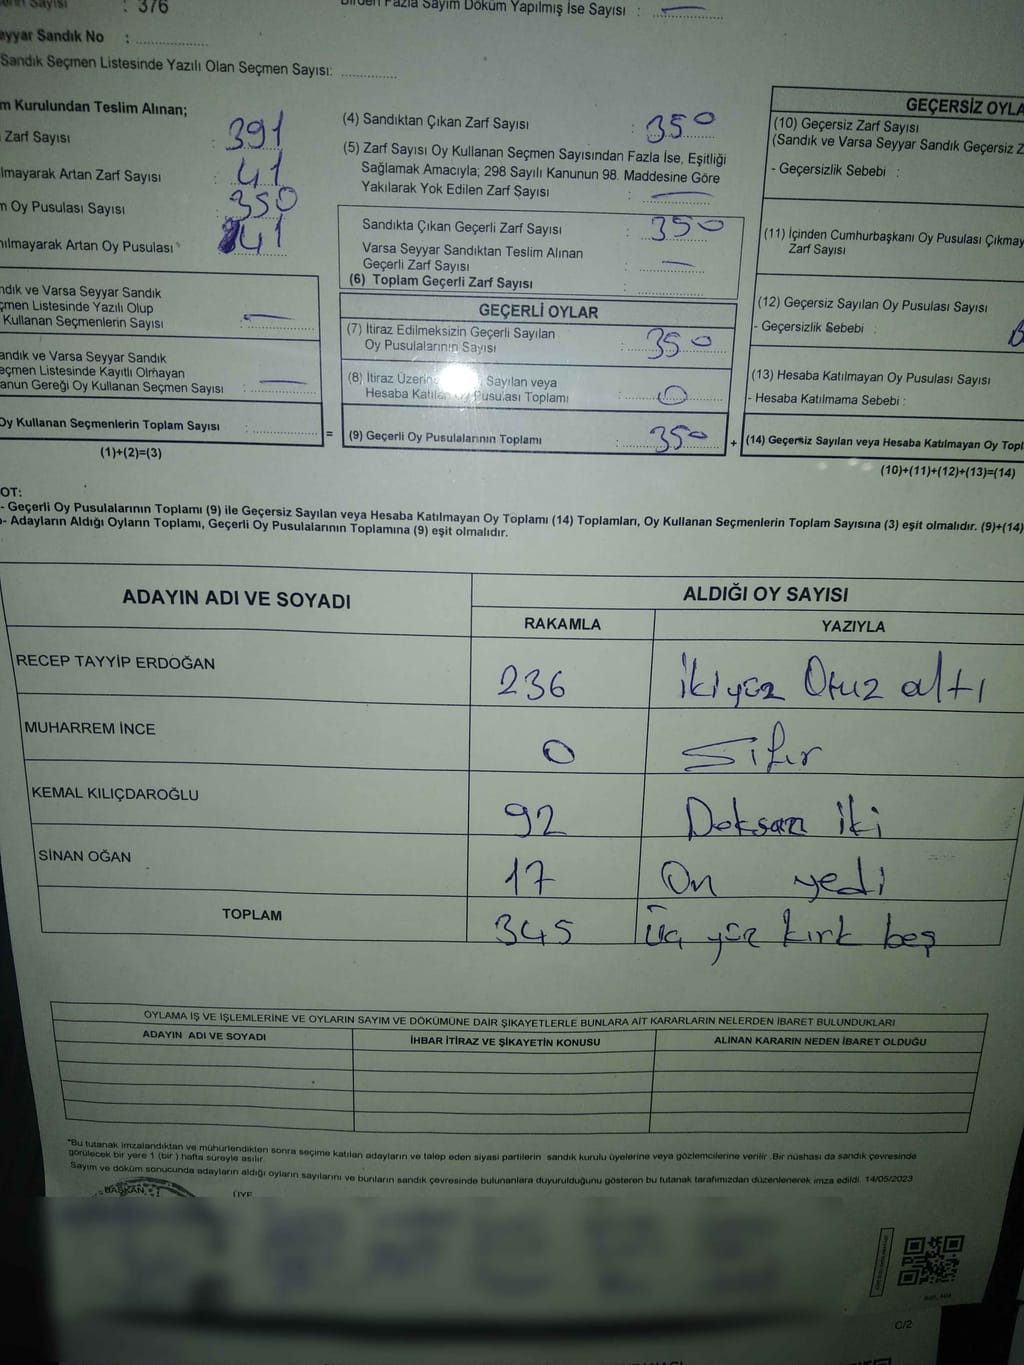 : 376
Birden Fazla Sayım Döküm Yapılmış İse Sayısı : —
eyyar Sandık No :
Sandık Seçmen Listesinde Yazılı Olan Seçmen Sayısı:
m Kurulundan Teslim Alınan;
Zarf Sayısı : 391
lmayarak Artan Zarf Sayısı : 41
n Oy Pusulası Sayısı : 350
nılmayarak Artan Oy Pusulası : 41
ndık ve Varsa Seyyar Sandık
çmen Listesinde Yazılı Olup
Kullanan Seçmenlerin Sayısı : —
andık ve Varsa Seyyar Sandık
eçmen Listesinde Kayıtlı Olmayan
anun Gereği Oy Kullanan Seçmen Sayısı : —
Oy Kullanan Seçmenlerin Toplam Sayısı :
(1)+(2)=(3)
(4) Sandıktan Çıkan Zarf Sayısı : 350
(5) Zarf Sayısı Oy Kullanan Seçmen Sayısından Fazla İse, Eşitliği
Sağlamak Amacıyla; 298 Sayılı Kanunun 98. Maddesine Göre
Yakılarak Yok Edilen Zarf Sayısı : —
Sandıkta Çıkan Geçerli Zarf Sayısı : 350
Varsa Seyyar Sandıktan Teslim Alınan
Geçerli Zarf Sayısı : —
(6) Toplam Geçerli Zarf Sayısı :
GEÇERLİ OYLAR
(7) İtiraz Edilmeksizin Geçerli Sayılan
Oy Pusulalarının Sayısı : 350
(8) İtiraz Üzerine Sayılan veya
Hesaba Katılan Oy Pusulası Toplamı : 0
= (9) Geçerli Oy Pusulalarının Toplamı : 350 +
GEÇERSİZ OYLA
(10) Geçersiz Zarf Sayısı
(Sandık ve Varsa Seyyar Sandık Geçersiz Z
- Geçersizlik Sebebi :
(11) İçinden Cumhurbaşkanı Oy Pusulası Çıkmay
Zarf Sayısı
(12) Geçersiz Sayılan Oy Pusulası Sayısı
- Geçersizlik Sebebi :
(13) Hesaba Katılmayan Oy Pusulası Sayısı
- Hesaba Katılmama Sebebi :
(14) Geçersiz Sayılan veya Hesaba Katılmayan Oy Topl
(10)+(11)+(12)+(13)=(14)
OT:
- Geçerli Oy Pusulalarının Toplamı (9) ile Geçersiz Sayılan veya Hesaba Katılmayan Oy Toplamı (14) Toplamları, Oy Kullanan Seçmenlerin Toplam Sayısına (3) eşit olmalıdır. (9)+(14)
- Adayların Aldığı Oyların Toplamı, Geçerli Oy Pusulalarının Toplamına (9) eşit olmalıdır.
ADAYIN ADI VE SOYADI
ALDIĞI OY SAYISI
RAKAMLA YAZIYLA
RECEP TAYYİP ERDOĞAN 236 İkiyüz Otuz altı
MUHARREM İNCE 0 Sıfır
KEMAL KILIÇDAROĞLU 92 Doksan iki
SİNAN OĞAN 17 On yedi
TOPLAM 345 Üç yüz kırk beş
OYLAMA İŞ VE İŞLEMLERİNE VE OYLARIN SAYIM VE DÖKÜMÜNE DAİR ŞİKAYETLERLE BUNLARA AİT KARARLARIN NELERDEN İBARET BULUNDUKLARI
ADAYIN ADI VE SOYADI İHBAR İTİRAZ VE ŞİKAYETİN KONUSU ALINAN KARARIN NEDEN İBARET OLDUĞU
*Bu tutanak imzalandıktan ve mühürlendikten sonra seçime katılan adayların ve talep eden siyasi partilerin sandık kurulu üyelerine veya gözlemcilerine verilir. Bir nüshası da sandık çevresinde
görülecek bir yere 1 (bir) hafta süreyle asılır.
Sayım ve döküm sonucunda adayların aldığı oyların sayılarını ve bunların sandık çevresinde bulunanlara duyurulduğunu gösteren bu tutanak tarafımızdan düzenlenerek imza edildi. 14/05/2023
BAŞKAN
ÜYE
C/2